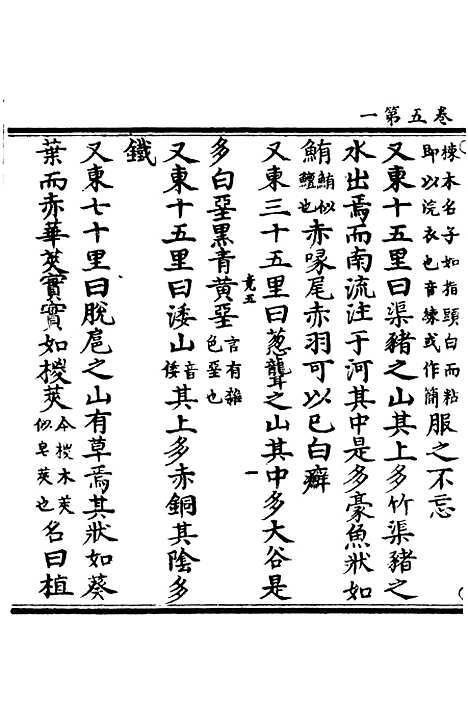 卷五第一
楝木名子如指頭白而粘
即以浣衣也音練或作簡服之不忘
又東十五里曰渠豬之山其上多竹渠豬之
水出焉而南流注于河其中是多豪魚狀如
鮪鮪似鱣也赤喙尾赤羽可以已白癬
又東三十五里曰蔥聾之山其中多大谷是
多白堊黑青黃堊言有雜色堊也
又東十五里曰涹山音倭其上多赤銅其陰多
鐵
又東七十里曰脫扈之山有草焉其狀如葵
葉而赤華莢實實如椶莢今椶木莢似皂莢也名曰植